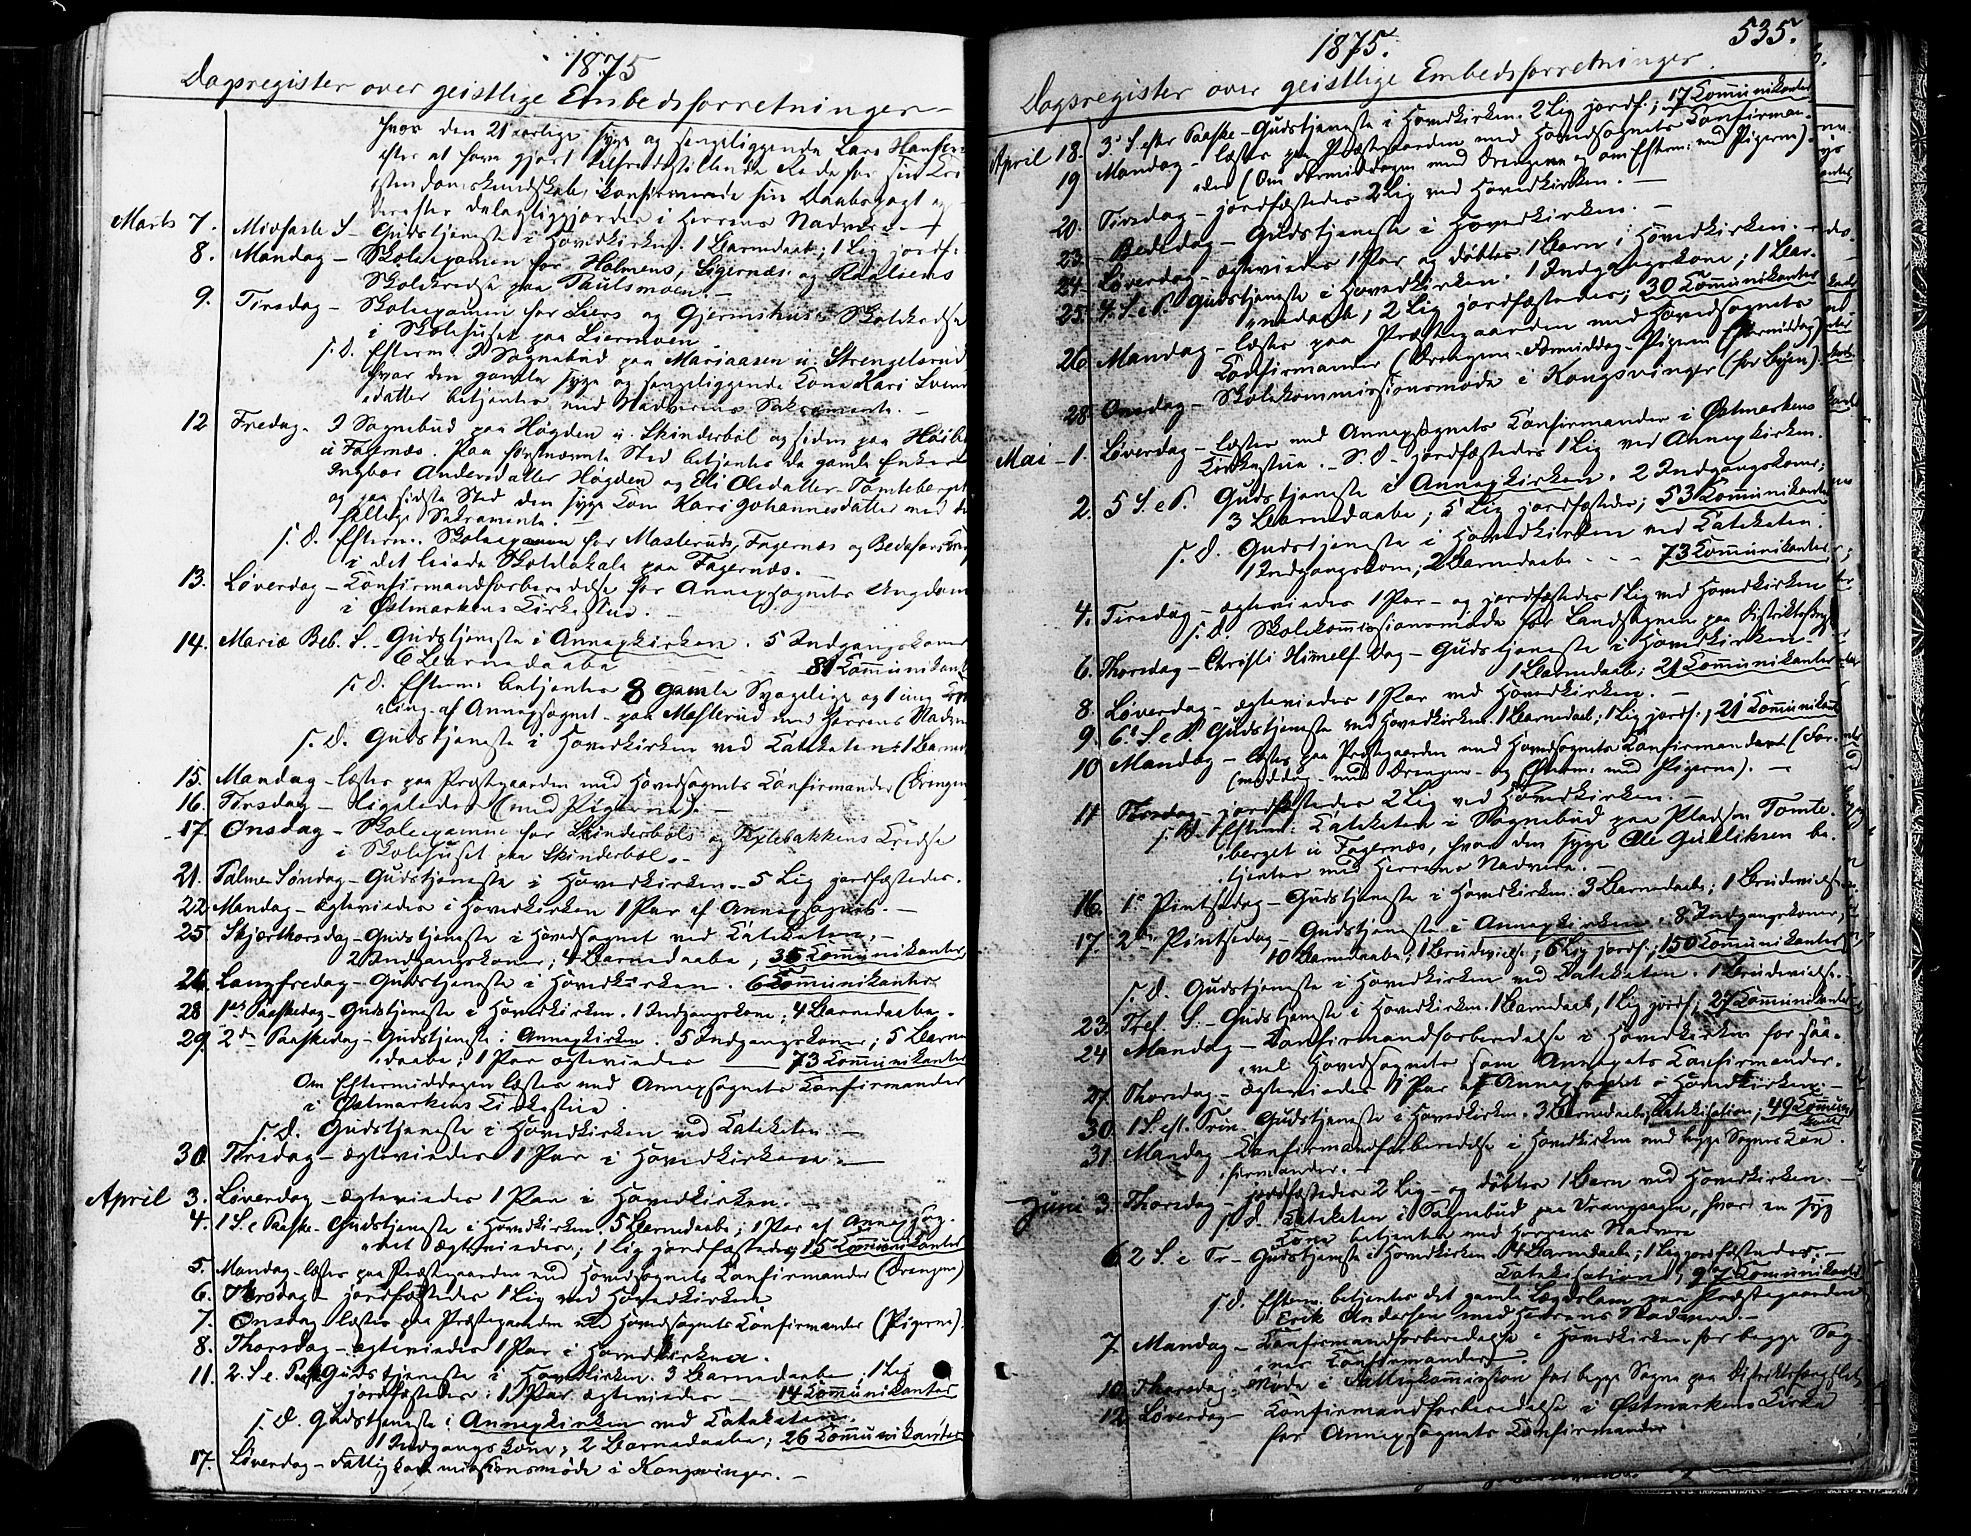 1875
Dagsregister over geistlige Embedsforretninger
hvor den 21 aarlige syge og sengeliggende Lars Hansen
efter at have gjort tilfredsstillende Rede for sin Kri
stendomskundskab, konfirmerede sin Daabspagt og
derefter delagtiggjordes i Herrens Nadvere. —
Marts 7. Midfaste S — Gudstjeneste i Hovedkirken. 1 Barnedaab; 1 Lig jordf:
8. Mandag — Skoleexamen for Holmens, Sigernæs og Rafelsens
Skolekredse paa Paulsmoen. —
9. Tirsdag — Skoleexamen for Liers og Gjermshus's Skolekredse
i Skolehuset paa Liermoen.
s. D. Efterm. I Sognebud paa Mariaasen u. Strengelsrud
hvor den gamle syge og sengeliggende Kone Kari Svends
datter betjentes med Nadverens Sakramente. —
12 Fredag. I Sognebud paa Høgden u. Skinderbøl og siden paa
u Fagernæs. Paa førstnævnte Sted betjentes de gamle Enker
Ingbor Andersdatter Høgden og Eli Olesdatter Tomteberget
og paa sidste Sted den syge Kone Kari Johannesdatter med det
hellige Sakramente. —
s. D. Efterm. Skoleexamen for Masteruds, Fagernæs og
i det leiede Skolelokale paa Fagernæs. —
13. Løverdag — Confirmandforberedelse for Annexsognets Ungdom
i Østmarkens Kirkestue. —
14. Mariæ Beb. S. — Gudstjeneste i Annexkirken. 5 Indgangskoner
6 Barnedaabe 81 Communikanter
s. D. Efterm. betjentes 8 gamle Svagelige og 1 ung
ling af Annexsognet paa Masterud med Herrens Nadvere
s. D. Gudstjeneste i Hovedkirken ved Kateketen: 1 Barned
15. Mandag — læstes paa Præstegaarden med Hovedsognets Confirmander (Drengene
16. Tirsdag — ligeledes (med Pigerne). —
17. Onsdag — Skoleexamen for Skinderbøls og Kredse
i Skolehuset paa Skinderbøl. —
21. Palme Søndag — Gudstjeneste i Hovedkirken. 5 Lig jordfæstedes.
22. Mandag — ægteviedes i Hovedkirken 1 Par af Annexsognet. —
25 Skjærthorsdag — Gudstjeneste i Hovedsognet ved Kateketen. —
2 Indgangskoner; 4 Barnedaabe; 35 Kommunikanter
26. Langfredag — Gudstjeneste i Hovedkirken. 6 Kommunikanter
28 1ste Paaskedag — Gudstjeneste i Hovedkirken. 1 Indgangskone; 4 Barnedaabe. —
29. 2den Paaskedag — Gudstjeneste i Annexkirken. 5 Indgangskoner; 5 Barne
daabe; 1 Par ægteviedes 73 Communikanter
Om Eftermiddagen læstes med Annexsognets Confirmander
i Østmarkens Kirkestue.
s. D. Gudstjeneste i Hovedkirken ved Kateketen —
30 Tirsdag — ægteviedes 1 Par i Hovedkirken. —
April 3. Løverdag — ægteviedes 1 Par i Hovedkirken. —
4. 1 S. e Paaske. Gudstjeneste i Hovedkirken. 5 Barnedaabe; 1 Par af Annexsog
net ægteviedes; 1 Lig jordfæstedes; 15 Communikanter
5. Mandag — læstes paa Præstegaarden med Hovedsognets Confirmander (Drengene)
6. Tirsdag — jordfæstedes 1 Lig ved Hovedkirken
7. Onsdag læstes paa Præstegaarden med Hovedsognets Confirmander (Pigerne).
8. Thorsdag — ægteviedes 1 Par i Hovedkirken.
11. 2. S. e. Paaske Gudstjeneste i Hovedkirken. 3 Barnedaabe; 1 Lig
jordfæstedes; 1 Par ægteviedes — 14 Communikanter
s. D. Gudstjeneste i Annexkirken ved Kateketen.
1 Indgangskone; 2 Barnedaabe; 26 Communikanter
17. Løverdag — Fattigkommissionsmøde i Kongsvinger. —
1875. 535.
Dagsregister over geistlige Embedsforretninger.
April 18. 3 S. efter Paaske — Gudstjeneste i Hovedkirken. 2 Lig jordf.; 17 Communikanter
19 Mandag — læstes paa Præstegaarden med Hovedsognets Confirman
der (Om Formiddagen med Drengene og om Efterm. med Pigerne).
20. Tirsdag — jordfæstedes 2 Lig ved Hovedkirken. —
23. — Bededag — Gudstjeneste i Hovedkirken. —
24. Løverdag — ægteviedes 1 Par og døbtes 1 Barn i Hovedkirken. —
25. 4. S. e P. Gudstjeneste i Hovedkirken. 1 Indgangskone; 1 Bar
nedaab; 2 Lig jordfæstedes; 30 Communikanter
26. Mandag — læstes paa Præstegaarden med Hovedsognets
Confirmander (Drengene Formiddag — Pigerne Eftermiddag)
28. Onsdag — Skolekommissionsmøde i Kongsvinger (for Byen).
Mai — 1. Løverdag — læstes med Annexsognets Confirmander i Østmarkens
Kirkestue. — S. D. jordfæstedes 1 Lig ved Annexkirken.
2. 5 S. e P. Gudstjeneste i Annexkirken. 2 Indgangskoner;
3 Barnedaabe; 5 Lig jordfæstedes; 53 Communikanter
s. D. Gudstjeneste i Hovedkirken ved Kateketen.
1 Indgangskone; 2 Barnedaabe — — 73 Communikanter
4. Tirsdag — ægteviedes 1 Par — og jordfæstedes 1 Lig ved Hovedkirken
s. D. Skolekommissionsmøde for Landsognene paa Distriktsfængslet
6. Thorsdag — Christi Himmelf. Dag — Gudstjeneste i Hovedkirken —
1 Barnedaab; 21 Communikanter
8. Løverdag — ægteviedes 1 Par ved Hovedkirken. —
9. 6. S e P Gudstjeneste ved Hovedkirken. 1 Barnedaab; 1 Lig jordf.; 21 Communikant
10 Mandag — læstes paa Præstegaarden med Hovedsognets Confirmander (For
middag med Drengene og Efterm: med Pigerne). —
11 Tirsdag — jordfæstedes 2 Lig ved Hovedkirken. —
s. D. Efterm: Kateketen i Sognebud paa Pladsen Tomte
berget u Fagernæs, hvor den syge Ole Gulliksen be
tjentes med Herrens Nadvere. —
16. 1ste Pintsedag — Gudstjeneste i Hovedkirken: 3 Barnedaabe; 1 Brudevielse
17. 2den Pintsedag — Gudstjeneste i Annexkirken. 8 Indgangskoner;
10 Barnedaabe; 1 Brudevielse; 6 Lig jordf.; 150 Communikanter
s. D. Gudstjeneste i Hovedkirken ved Kateketen. 1 Brudevielse. —
23. Tref. S. — Gudstjeneste i Hovedkirken. 1 Barnedaab, 1 Lig jordf.; 27 Communikanter
24 Mandag — Confirmandforberedelse i Hovedkirken for saa
vel Hovedsognets som Annexets Confirmander.
27. Thorsdag — ægteviedes 1 Par af Annexsognet i Hovedkirken. —
30. 1 S. eft. Trin. Gudstjeneste i Hovedkirken. 3 Barnedaabe; Katekisation; 49 Communi
kanter
31. Mandag — Confirmandforberedelse i Hovedkirken med begge Sognes Con
firmander. —
Juni 3. Thorsdag — jordfæstedes 2 Lig — og døbtes 1 Barn ved Hovedkirken. —
s. D. Kateketen i Sognebud paa Vrangsagen, hvor en syg
Kone betjentes med Herrens Nadvere
6. 2 S. e Tr — Gudstjeneste i Hovedkirken. 4 Barnedaabe; 1 Lig jordfæstedes. —
Katekisation; 97 Communikanter
s. D. Efterm. betjentes det gamle Lægdslem paa Præstegaarden
Erik Andersen med Herrens Nadvere. —
7. Mandag — Confirmandforberedelse i Hovedkirken for begge Sog
nes Confirmander. —
10. Thorsdag — Møde i Fattigkommission for begge Sogne paa Distriktsfængslet
12. Løverdag — Confirmandforberedelse i Østmarkens Kirke
for Annexsognets Confirmander